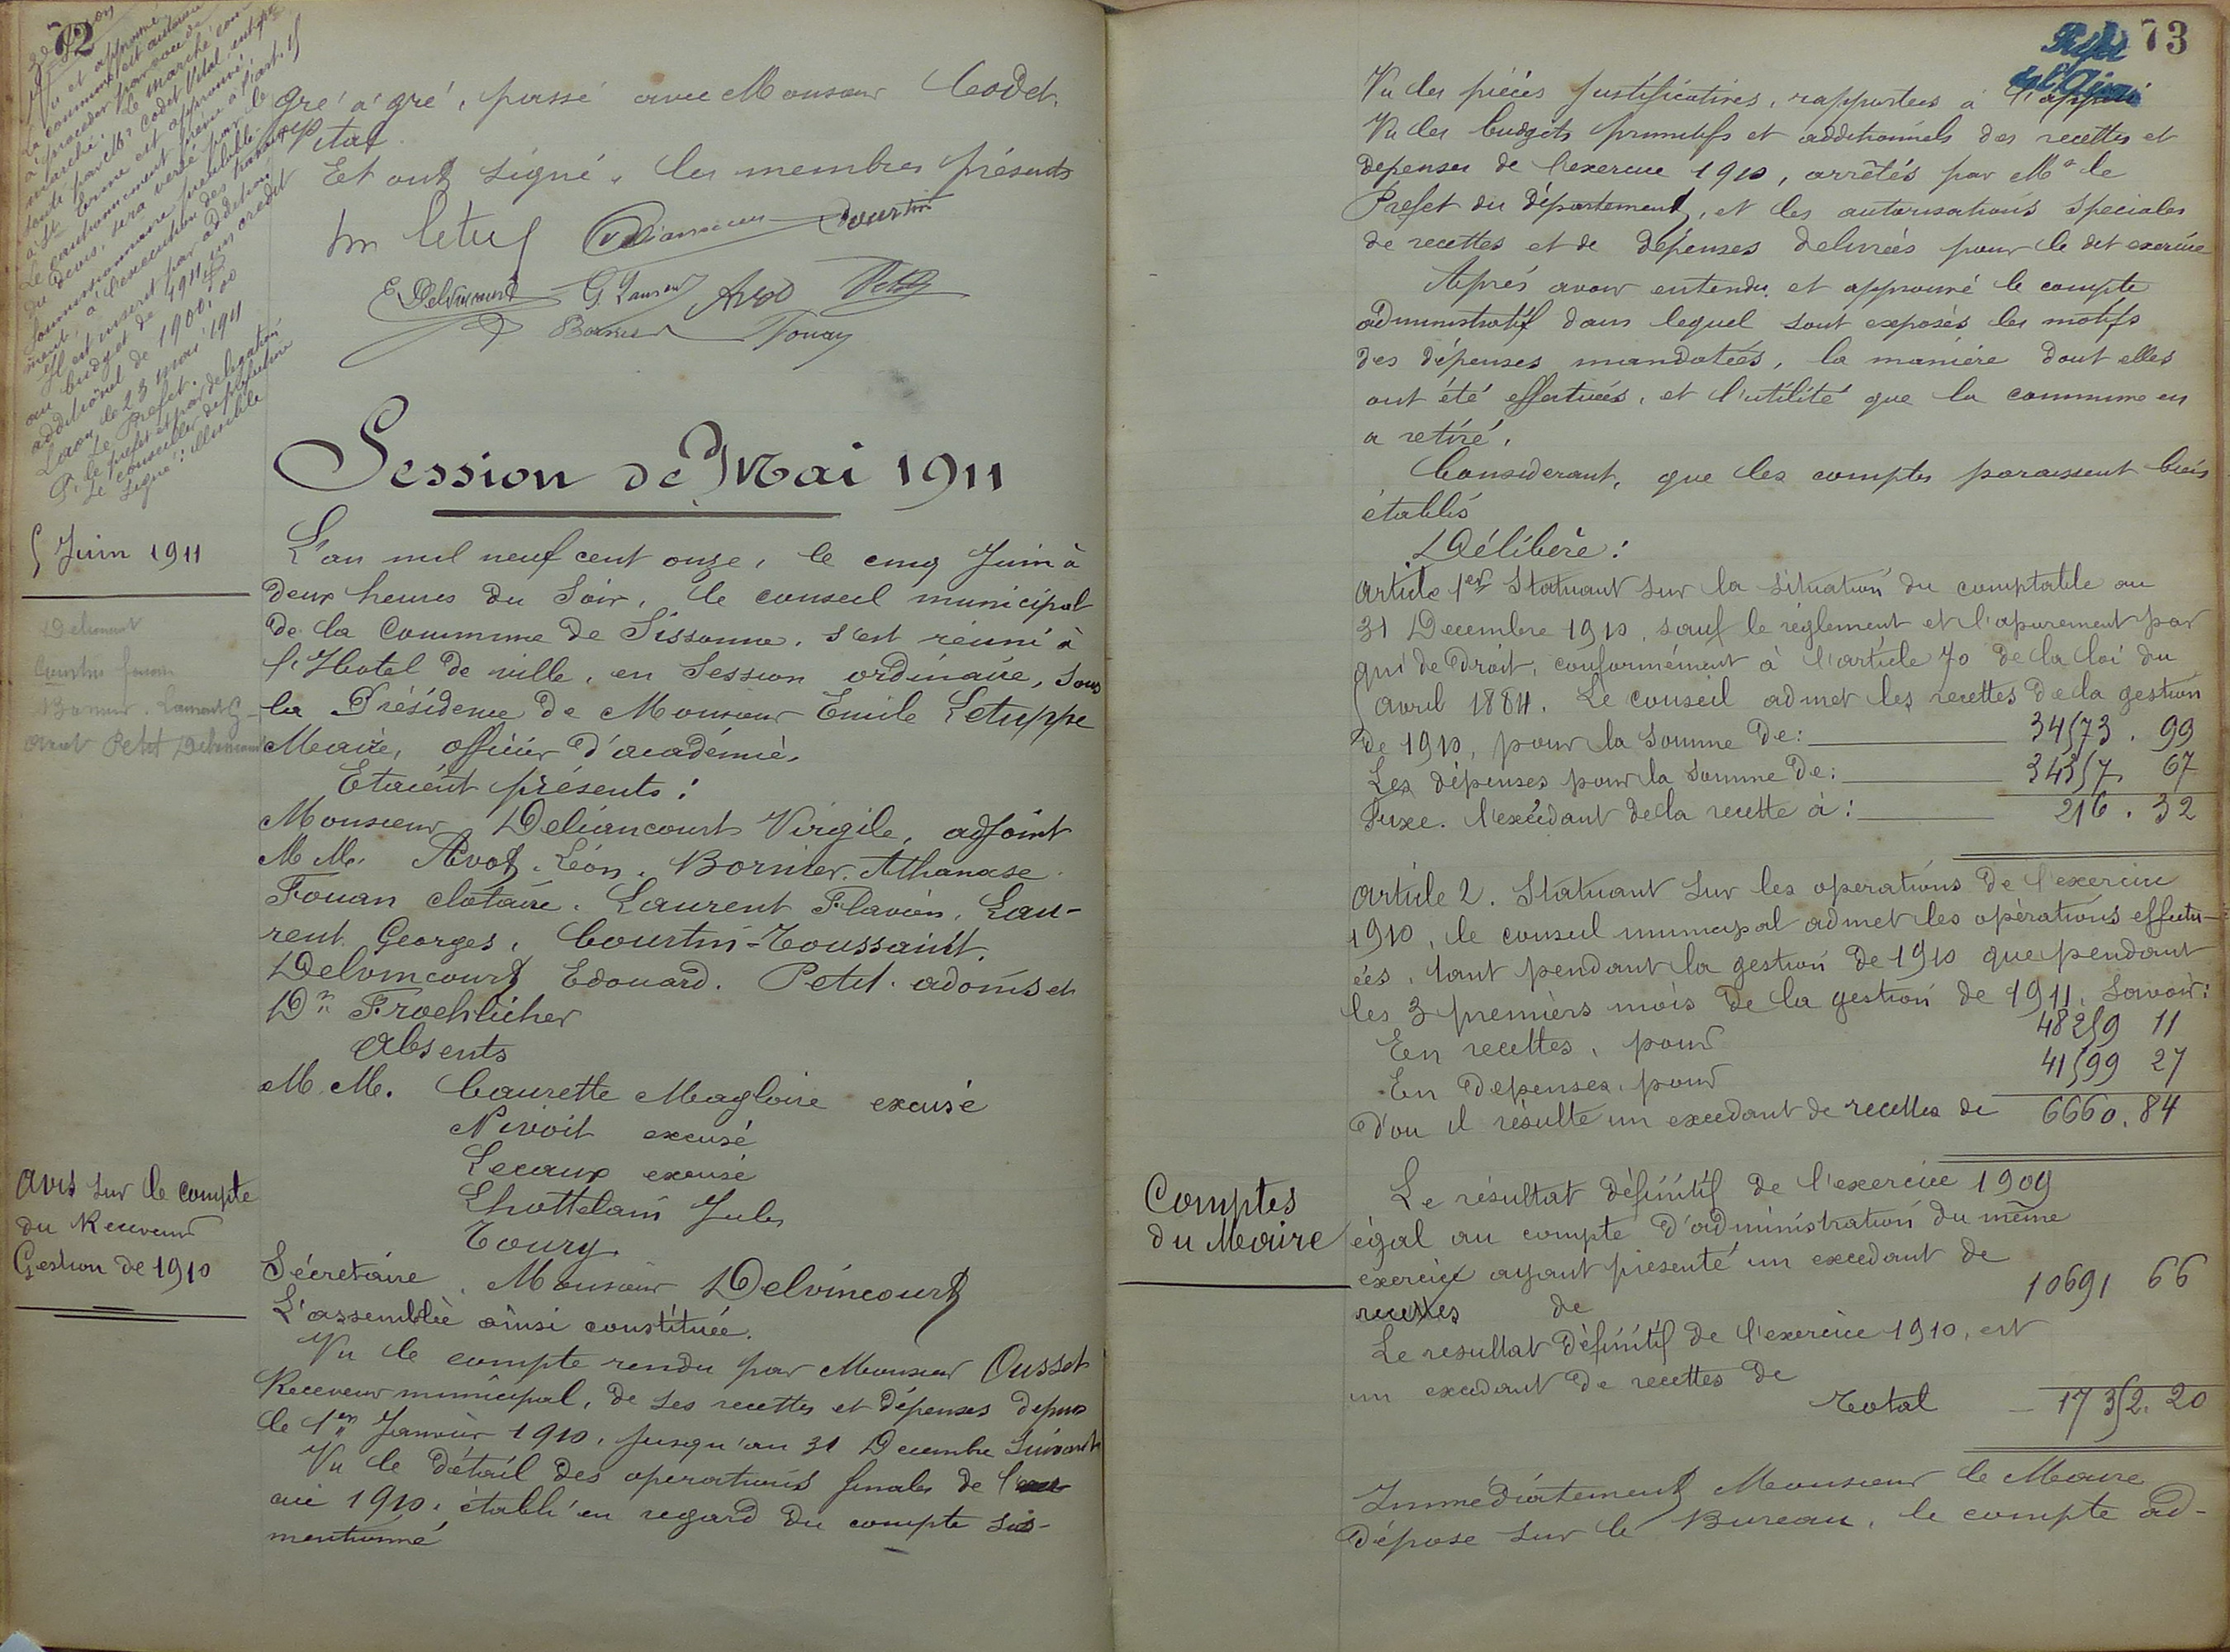 72
Vu et approuvé
La commune est autorisée
à procéder par voie de
marché. Le marché con-
senti par Mr Codet Vital, entepr
à St Erme est approuvé.
Le cautionnement prévu à l'art. 5
du devis, sera versé par le
soumissionnaire préalable-
ment, à l'execution des travaux
Il est inscrit par addition
au budget de 1911 un crédit
additionnel de 1900f,00
Laon, le 23 mai 1911
Le Prefet.
P. le prefet et par délégation
Le conseiller de préfecture
Signé: illisible
gré à gré, passé avec Monsieur Codet,
Vital
Et ont signé, les membres présents
Courtin
E Delvincourt G. Laurent Avot Petit
Bornier Fouan
Session de Mai 1911
5 Juin 1911
L'an mil neuf cent onze, le cinq Juin à
deux heures du soir, le conseil municipal
de la Commune de Sissonne, s'est réuni à
l'Hotel de ville, en Session ordinaire, sous
la Présidence de Monsieur Emile Letuppe
Maire, officier d'académie.
Etaient présents:
Monsieur Deliancourt Virgile, adjoint
M M. Avot Léon, Bornier Athanase.
Fouan clotaire. Laurent Flavien, Lau-
rent Georges, Courtin-Toussaint,
Delvincourt Edouard. Petit adonis et
Dr Froehlicher
Absents
M M. Caurette Magloire excusé
Nivoit excusé
Lecaux excusé
Lhottelain Jules
Toury
Sécretaire, Monsieur Delvincourt
Avis sur le compte
du Receveur
Gestion de 1910
L'assemblée ainsi constituée.
Vu le compte rendu par Monsieur Ousset
Receveur municipal, de ses recettes et dépenses depuis
le 1er Janvier 1910, jusqu'au 31 Decembre suivant
Vu le détail des operations finales de l'exer
cice 1910, établi en regard du compte sus-
mentionné
73
Préfre
de l'Aisne
Vu les pièces justificatives, rapportées à l'appui
Vu les budgets primitifs et additionnels des recettes et
depenses de l'exercice 1910, arrêtés par Mr le
Prefet du Département, et les autorisations speciales
de recettes et de dépenses delivrées pour le dit exercice
Après avoir entendu et approuvé le compte
administratif dans lequel sont exposés les motifs
des dépenses mandatées, la manière dont elles
ont été effectuées, et l'utilité que la commune en
a retiré.
Considerant, que les comptes paraissent bien
établis
Délibère:
Article 1er Statuant sur la situation du comptable au
31 Decembre 1910, sauf le réglement et l'apurement par
qui de Droit, conformément à l'article 70 de la loi du
5 avril 1884. Le conseil admet les recettes de la gestion
de 1910, pour la somme de: 34573. 99
Les dépenses pour la somme de: 34357 67
Fixe. l'excédant de la recette à: 216. 32
Article 2. Statuant sur les operations de l'exercice
1910, le conseil municipal admet les opérations effectu-
ées, tant pendant la gestion de 1910 que pendant
les 3 premiers mois de la gestion de 1911. Savoir:
En recettes, pour 48259 11
En depenses, pour 41599 27
D'ou il résulte un excedant de recettes de 6660. 84
Comptes
du Maire
Le résultat définitif de l'exercice 1909
égal au compte d'administration du même
exercice ayant présenté un excedant de
recettes de 10691 66
Le resultat définitif de l'exercice 1910, est
un excedant de recettes de
Total 17352. 20
Immédiatement Monsieur le Maire
dépose sur le Bureau, le compte ad-